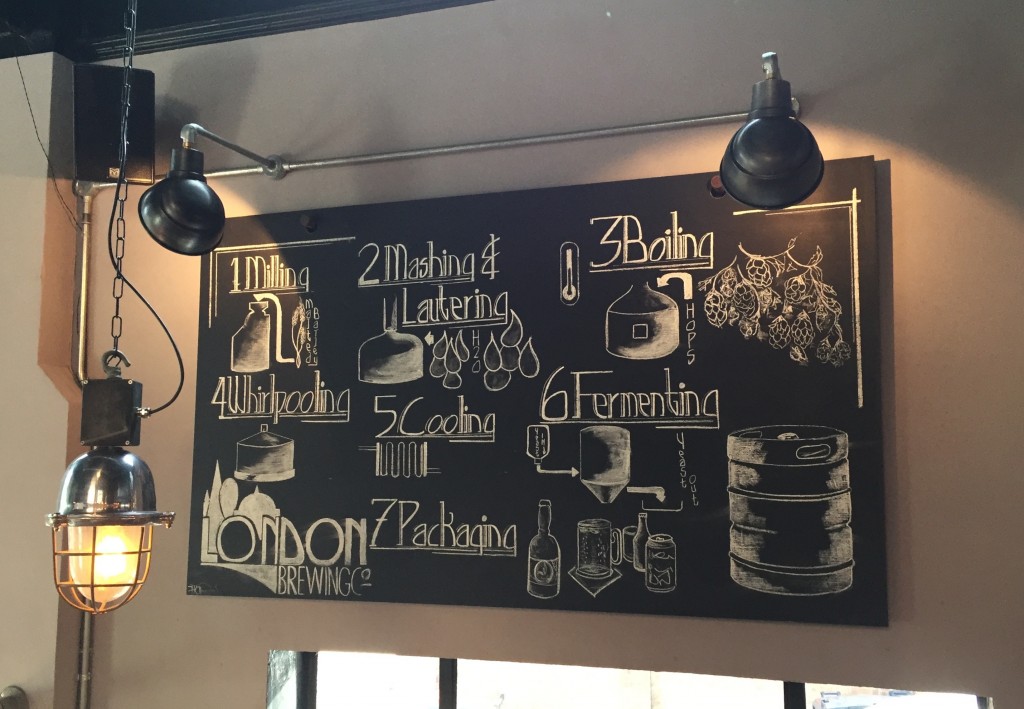 1 Milling
Malted
Barley
2 Mashing &
Lautering
H2O
3 Boiling
HOPS
4 Whirlpooling
5 Cooling
6 Fermenting
Yeast
Yeast
out
7 Packaging
LONDON
BREWING Co